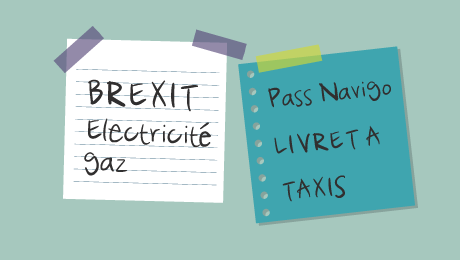 BREXIT
Electricité
gaz
Pass Navigo
LIVRET A
TAXIS